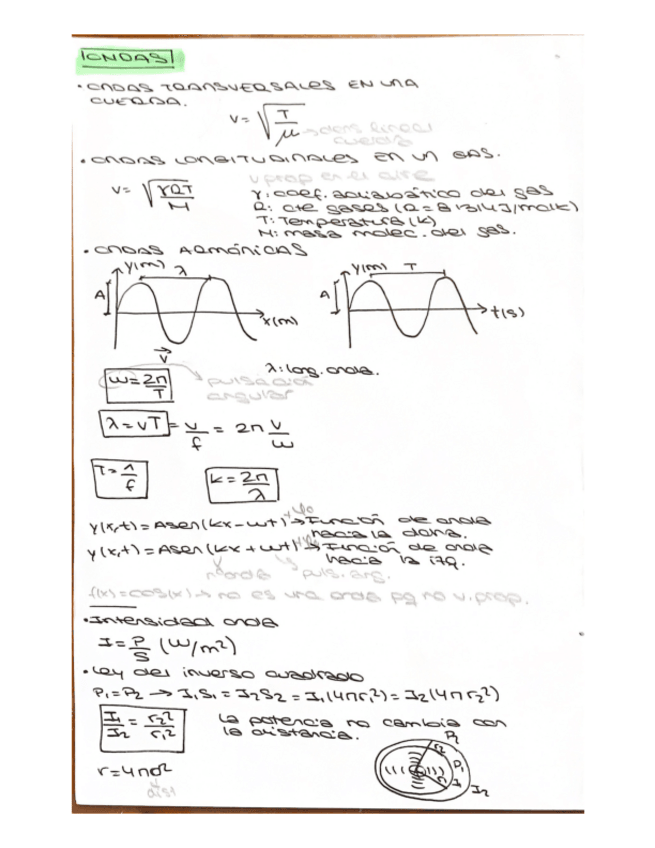 ONDAS
• ONDAS TRANSVERSALES EN UNA
CUERDA.
v = √(T/μ) → dens lineal
cuerda
• ONDAS LONGITUDINALES EN UN GAS.
v prop en el aire
v = √(γRT/M)
γ: coef. adiabático del gas
R: cte gases (R = 8'314 J/molK)
T: Temperatura (K)
M: masa molec. del gas.
• ONDAS ARMÓNICAS
y(m) λ A x(m) v
y(m) T A t(s)
λ: long. onda.
ω = 2π/T → pulsación
angular
λ = vT = v/f = 2π v/ω
T = 1/f
k = 2π/λ
y(x,t) = Asen(kx - ωt) +φo → Función de onda
hacia la dcha.
y(x,t) = Asen(kx + ωt) +φo → Función de onda
hacia la izq.
nºonda puls. ang.
f(x) = cos(x) → no es una onda pq no v. prop.
• Intensidad onda
I = P/S (W/m²)
• Ley del inverso cuadrado
P₁ = P₂ → I₁S₁ = I₂S₂ = I₁(4πr₁²) = I₂(4πr₂²)
I₁/I₂ = r₂²/r₁²
La potencia no cambia con
la distancia.
r = 4πd²
dist
P₂ r₂ P₁ r₁ I₁ I₂